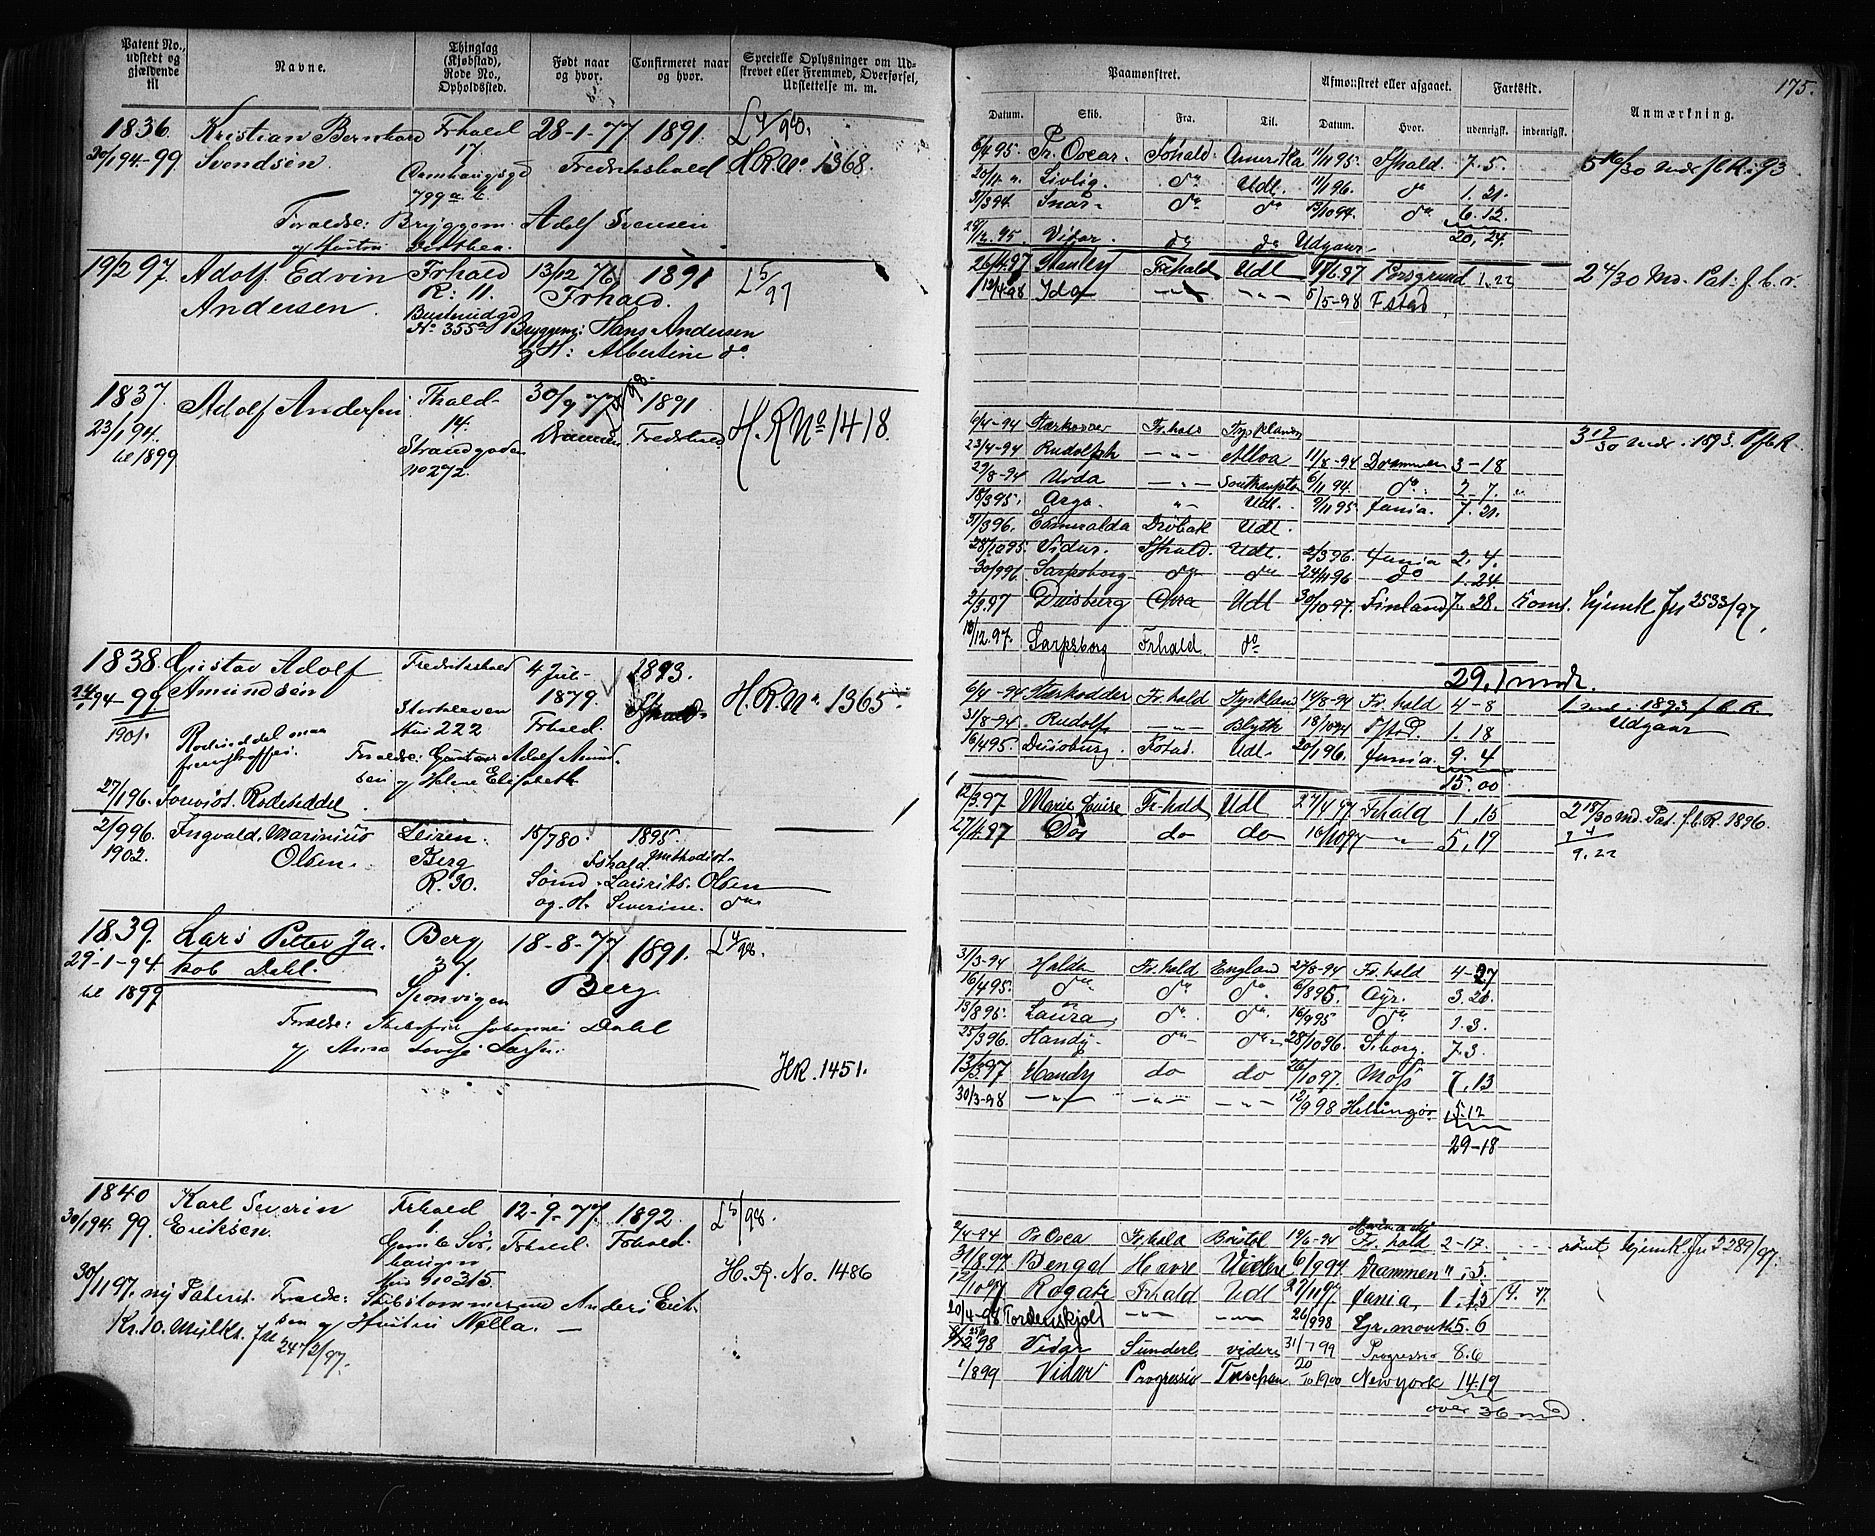 Patent No., udstedt og gjældende til
Navne.
Thinglag (Kjøbstad), Rode No., Opholdssted.
Født naar og hvor.
Confirmeret naar og hvor.
Specielle Oplysninger om Udskrevet eller Fremmed, Overførsel, Udslettelse m. m.
1836 Kristian Bernhard Frhald 28-1-77 1891. L 4/98.
30/1 94-99 Svendsen 17. Fredrikshald H.R.No. 1368.
799 a.
Foraldre: Bryggem. Adolf Svensen
og Hustru Dorthea.
19/2 97. Adolf Edvin Frhald 13/12 76 1891 L 5/97
Andersen R: 11. Frhald.
No 355a Bryggem: Hans Andersen
og H: Albertine do
1837. Adolf Andersen Fhald 30/9 77 1891
23/1 94. 14. Drammen Fredshald H.R No 1418.
til 1899 Strandgaden
No 272.
1838. Gustav Adolf Fredrikshald 4 Jul- 1893.
94-99 Amundsen 1879. Fhald H.R.No 1365
1901. Storkleven
Hus 222 Frhald.
Foraldre: Gustav Adolf Amund-
sen og Helene Elisabeth
27/1 96. Forvist Rodeseddel
2/9 96. Ingvald Marinius Leiren. 18/7 80. 1895.
1902. Olsen. Berg Fshald Methodist.
R. 30. Sømd. Laurits Olsen
og H. Severine do
1839. Lars Petter Ja- Berg 18-8-77 1891. L 4/98.
29-1-94. kob Dahl. 37. Berg
til 1899 Sponvigen
Foraldre: Johannes Dahl
og Anna Lovise
H.R. 1451.
1840 Karl Severin Frhald 12-9-77 1892. L 5/98.
30/1 94. 99. Eriksen. 1 Frhald. Frhald.
Hus No 315 H.R. No. 1486
30/11 97. ny Patent. Foraldre: Skibstømmermand Anders Erik-
sen og Hustru Nella.
Kr. 10. Mulkt. Jn 2472/97.
175.
Paamønstret.
Afmønstret eller afgaaet.
Fartstid.
Anmærkning.
Datum. Skib. Fra. Til. Datum. Hvor. udenrigsk. indenrigsk.
6/4 95. Pr. Oscar. Fshald. Amerika 11/11 95 Fshald. 7. 5. 5 16/30 Mdr f.C.R. 93
20/11 " Sivlig. do Udl. 11/1 96. do 1. 21.
31/3 94. Snar. do do 13/10 94. do 6. 12.
20. 24.
95. Vidar. do do Udgaar
26/4 97 Stanley Frhald Udl 17/6 97 Porsgrund 1. 22 2 4/30 Md. Pat: f.b.v.
12/4 98 Ida -"- -"- 5/5-98 Fstad
6/4-94 Stærkodder Fr.hald Tyskland 3 19/30 Mdr. 1893. P.f.b.R.
23/4-94 Rudolph -"- Alloa 11/8-94 Drammen 3-18
29/8-94 Urda -"- Southampton 6/11 94. do 2. 7.
18/3 95. Argo. -"- Udl. 9/11 95 Xania. 7. 21.
31/3 96. Esmeralda Drøbak Udl.
28/10 95. Vidar. Fshald. Udl. 2/3 96. Xania 2. 4.
30/9 96. Sarpsborg do do 24/11 96 do 1. 24
2/3 97 Duisburg Udl 30/10 97. Finland 7. 28. Romt. hjemkl Jn 2533/97
10/12 97. Sarpsborg Frhald. do
29. 1 mdr.
6/4-94 Stærkodder Fr.hald Tyskland 14/8-94 Fr.hald 4-8 1893 f.C.R.
31/8-94. Rudolf -"- Blyth 18/10 94 Fstd. 1. 18 Udgaar
16/4 95. Duisburg. Udl 20/1 96. Xania. 9. 4
15. 00
12/3 97 Marie Louise Fr.hald Udl 27/4 97 Frhald 1. 15 2 18/30 Md. Pat. f.b.R. 1896.
27/4 97 Do do do 16/10 97 -"- 5. 19
9. 22
31/3-94 Halden Fr.hald England 27/8-94 Fr.hald 4-27
16/4 95. do do do 6/8 95 Ayr. 3. 20.
13/8 95. Laura do do 16/9 95 do 1. 3.
25/3 96. Handy do do 28/10 96. S.borg. 7. 3.
13/3 97 Handy do do 26/10 97. Moss 7. 13
30/3-98 -"- -"- -"- 12/9 98 Helsingør 5. 12
29-18
2/4-94 Pr Oscar Fr.hald Bristol 19/6-94 Fr.hald 2-17. rømt hjemkl. Jn 2289/97.
31/8 94 Bengal Havre Videre 6/9 94 Drammen ". 5
12/10 97 Rogate Frhald Udl 27/11 97. Xania, 1. 15
20/4-98 Tordenskjold -"- -"- 26/9 98 Gr.mouth 5. 6
98 Vidar Sunderl. videre 31/7 99 Progresso 8. 6
1/8 99 Vidar Progresso Tuxpan 20/10 1900 New York 14 19
over 36 md.